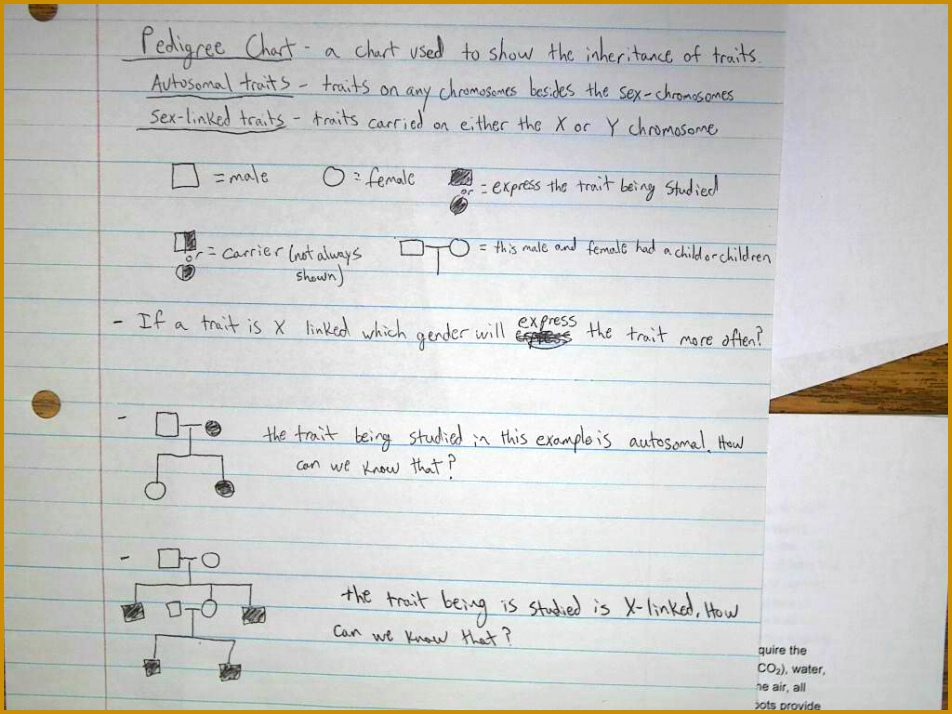 Pedigree Chart - a chart used to show the inheritance of traits.
Autosomal traits - traits on any chromosomes besides the sex-chromosomes
Sex-linked traits - traits carried on either the X or Y chromosome
= male
= female
or = express the trait being studied
or = carrier (not always shown)
= this male and female had a child or children
- If a trait is X linked which gender will express the trait more often?
- the trait being studied in this example is autosomal. How
can we know that?
- the trait being is studied is X-linked. How
can we know that?
quire the
CO₂), water,
he air, all
ots provide